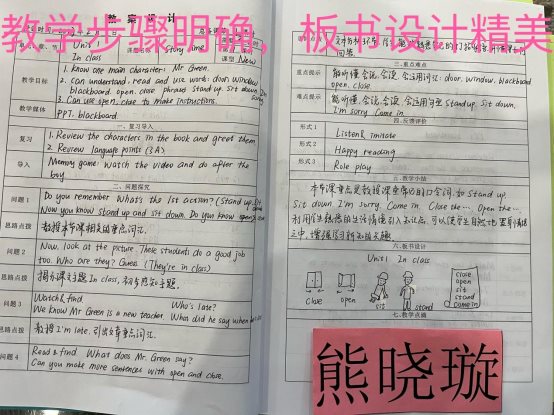 教学步骤明确，板书设计精美
教案设计
Unit
Story time
课型 New
In class
教学目标
1. Know one main character: Mr Green.
2. Can understand, read and use work: door, window
blackboard. open. close phrase stand up. sit down.
3. Can use open, close to make instructions.
教学媒体
PPT. blackboard
一、复习导入
复习
1. Review the characters in the book and greet them
2. Review language points (3A)
导入
Memory game: Watch the video and do after the
boy
二、问题探究
问题 1
Do you remember What's the 1st action? (Stand up, Sit
Now you know stand up and sit down. Do you know open
思路点拨
教授本节课相关的重点词汇.
问题 2
Now, look at the picture. These students do a good job
too. Who are they? Guess (They're in class)
思路点拨
揭示课文主题 In class,
问题 3
Watch & find
Who's late?
We know Mr Green is a new teacher. What did he say when
思路点拨
教授 I'm late. 引出文章重点词汇.
问题 4
Read & find What does Mr Green say?
Can you make more sentences with open and close.
回答
三、重点难点
重点提示
能听懂、会说、会读、会运用词汇: door. window. blackboard
open. close
难点提示
能听懂、会说、会读、会运用词汇 Stand up. Sit down.
I'm sorry. Come in
四、反馈评价
形式 1
Listen & imitate
形式 2
Happy reading
形式 3
Role play
五、教学小结
本节课重点是教授课堂常用口令词. 如 Stand up.
Sit down I'm sorry. Come in. Close the... Open the...
六、板书设计
Unit 1 In class
close
open
sit
stand
close
open
sit
stand
come in
七、教学点滴
熊晓璇